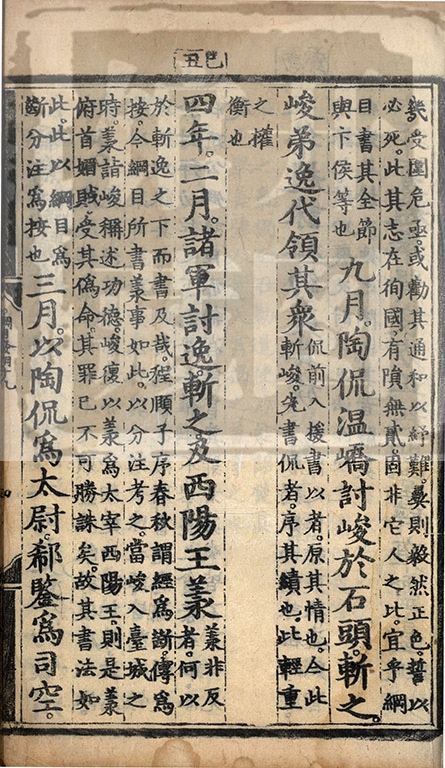 己丑
彛受圍危亟。或勸其通和以紓難。彛則毅然正色。誓以
必死。此其志在徇國。有隕無貳。固非它人之比。宜乎綱
目書其全節
與卞侯等也
九月。陶侃温嶠討峻於石頭。斬之。
峻弟逸代領其衆
侃前入援書以者。原其情也。今此
斬峻。先書侃者。序其績也。此輕重
之權
衡也
四年。二月。諸軍討逸。斬之。及西陽王羕
羕非反
者。何以
於斬逸之下而書及哉。程頤子序春秋。謂經爲斷。傳爲
按。今綱目所書羕事如此。以分注考之。當峻入臺城之
時。羕詣峻稱述功德。峻復以羕爲太宰西陽王。則是羕
俯首媚賊。受其偽命。其罪已不可勝誅矣。故其書法如
此。此以綱目爲
斷分注爲按也
三月。以陶侃爲太尉。郗鑒爲司空。